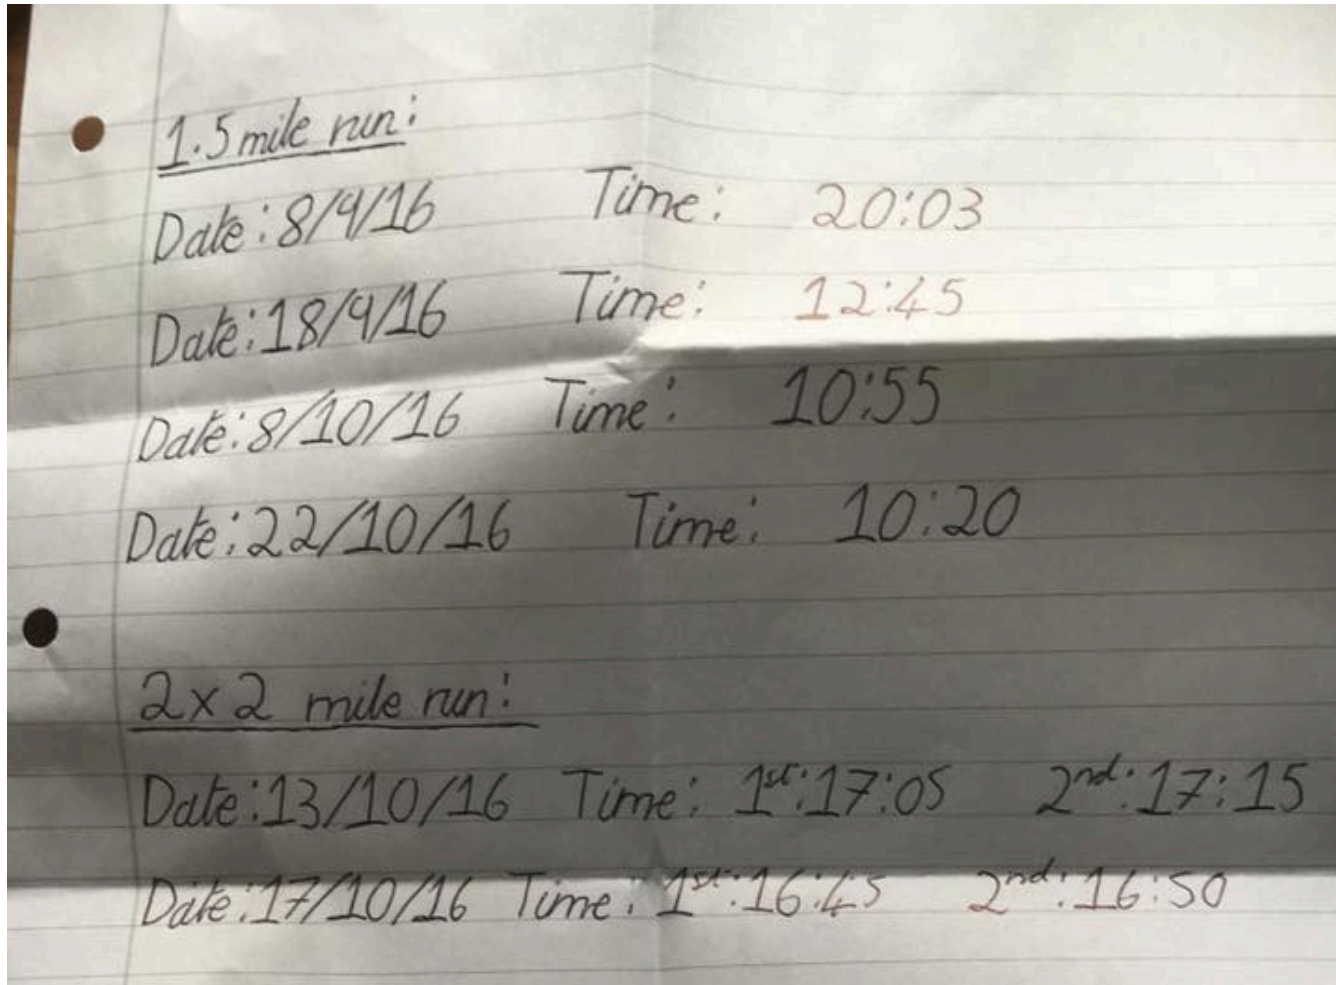 1.5 mile run:
Date: 8/9/16 Time: 20:03
Date: 18/9/16 Time: 12:45
Date: 8/10/16 Time: 10:55
Date: 22/10/16 Time: 10:20
2x2 mile run:
Date: 13/10/16 Time: 1st: 17:05 2nd: 17:15
Date: 17/10/16 Time: 1st: 16:45 2nd: 16:50